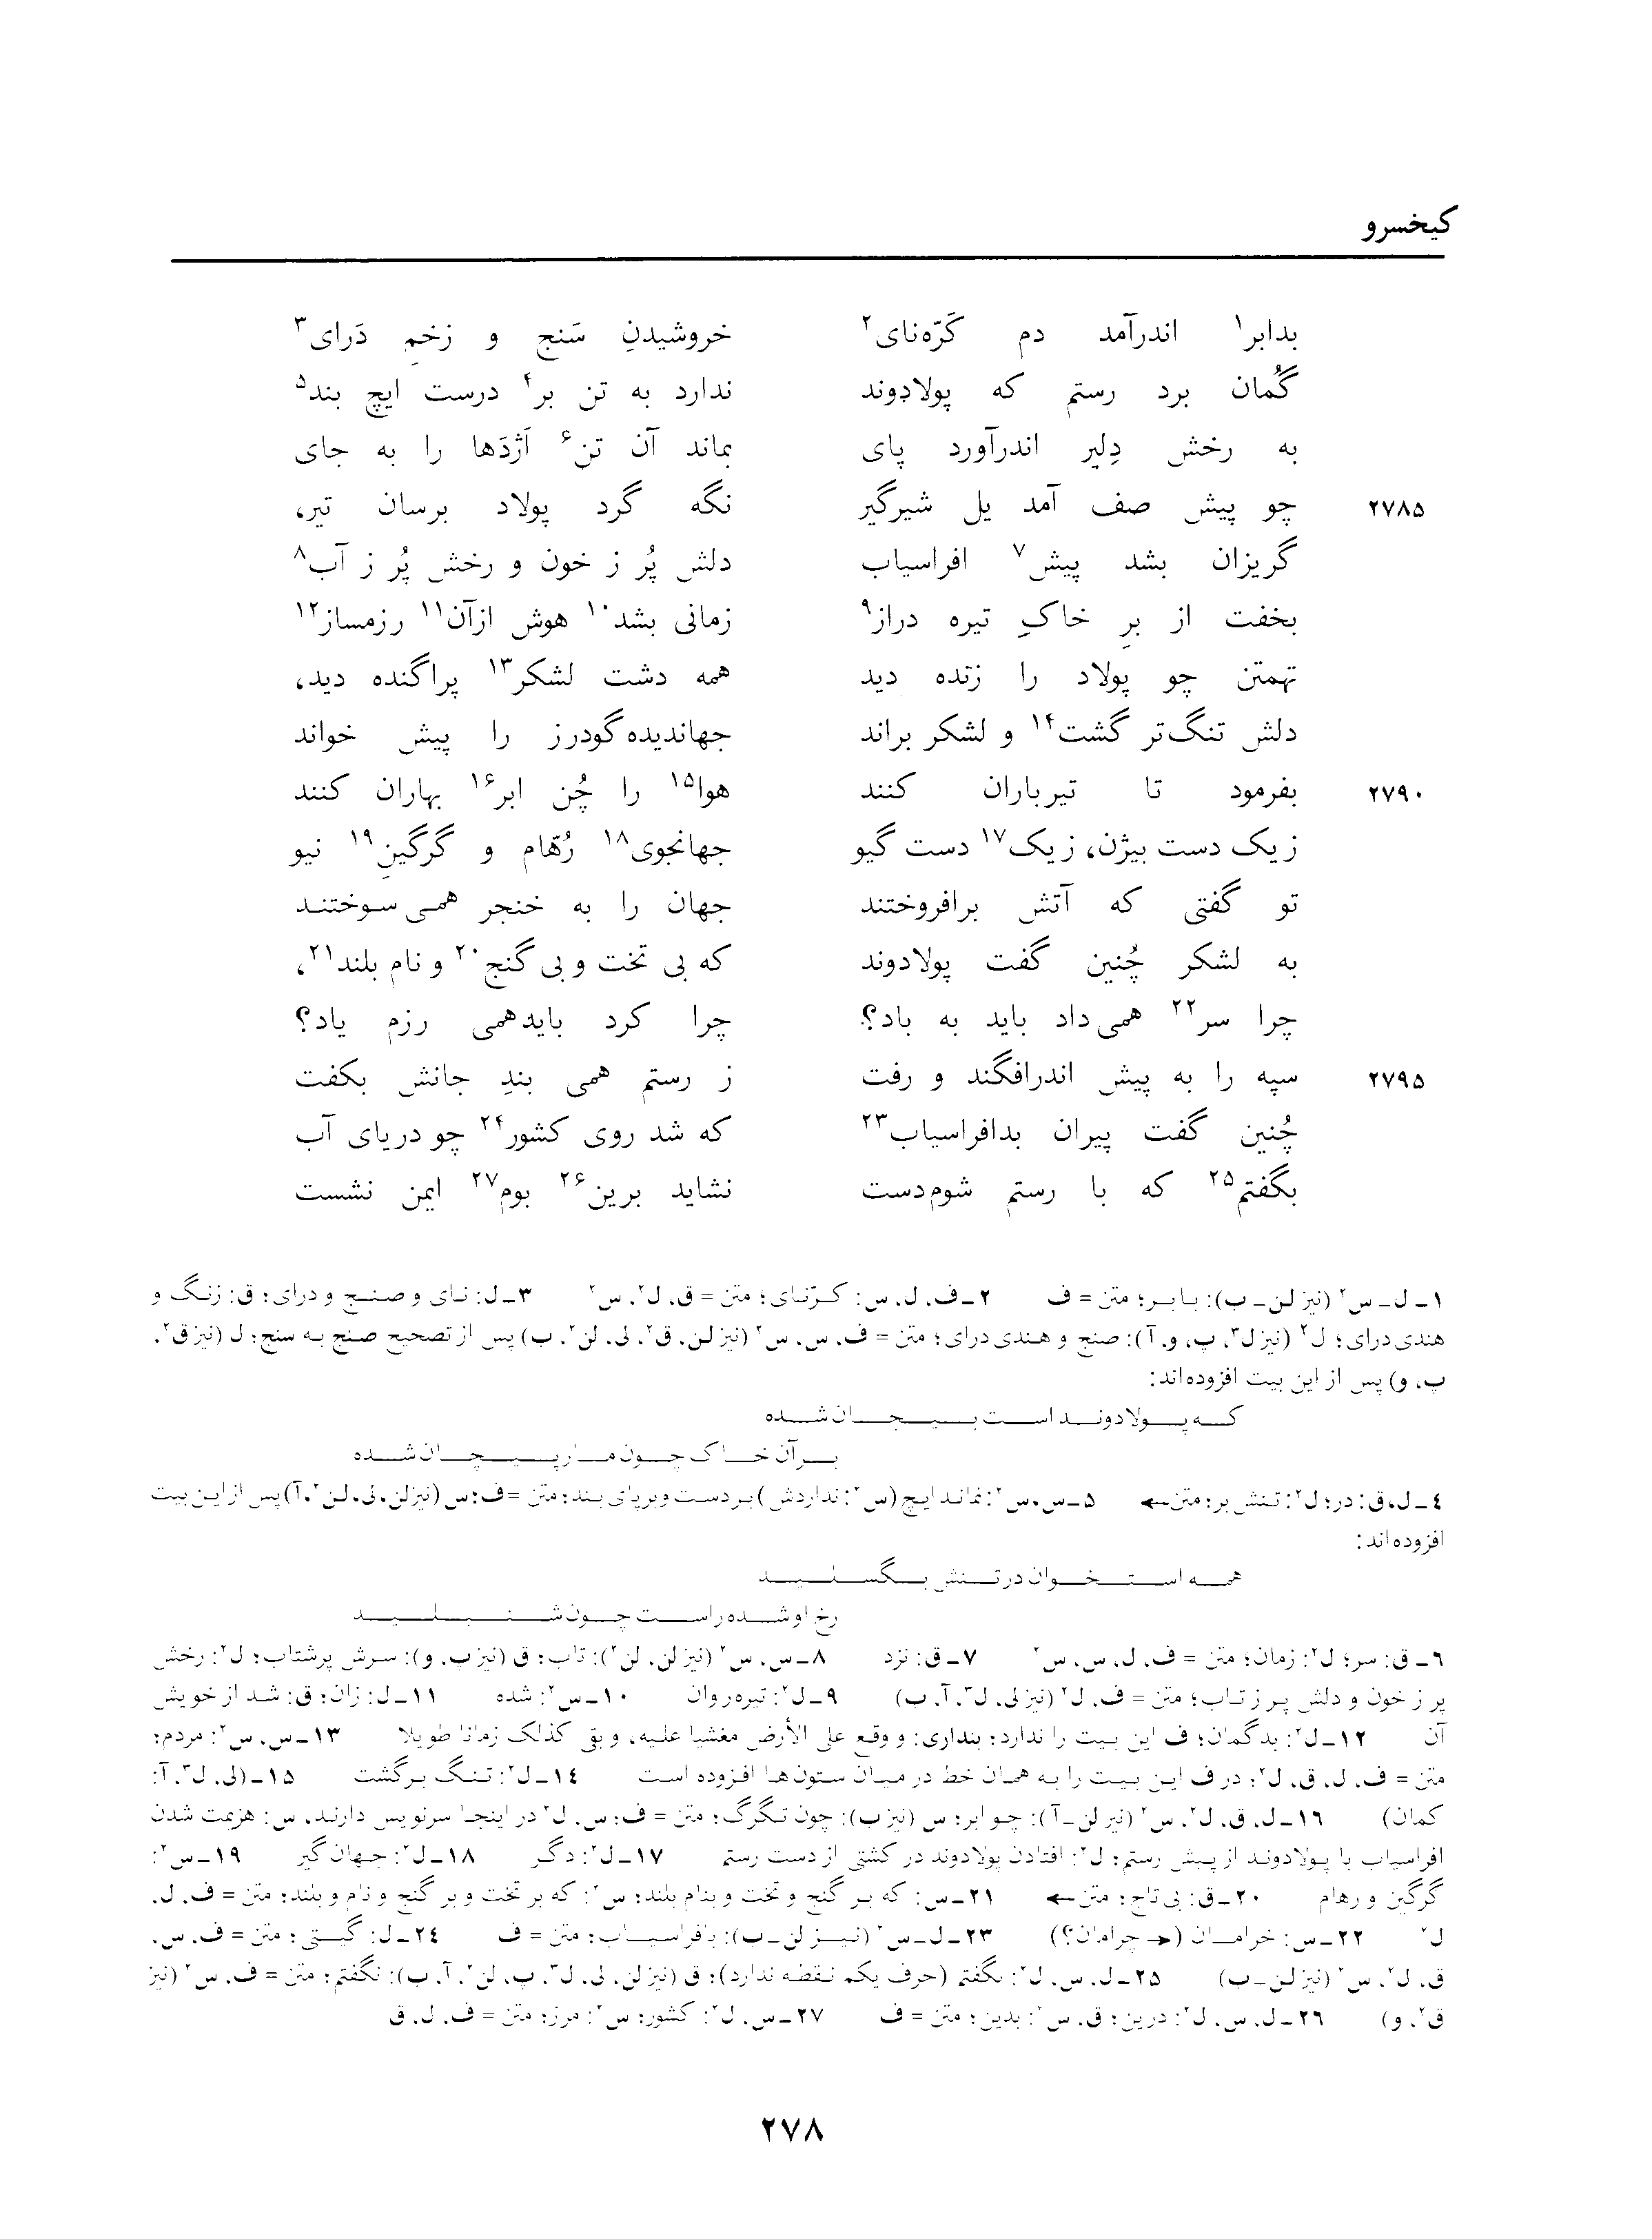 کیخسرو
بدابر۱ اندرآمد دم کَرّه‌نای۲ خروشیدنِ سَنج و زخمِ دَرای۳
گُمان برد رستم که پولادوند ندارد به تن بر۴ درست ایچ بند۵
به رخش دِلیر اندرآورد پای بماند آن تن۶ اَژدَها را به جای
۲۷۸۵ چو پیش صف آمد یل شیرگیر نگه کرد پولاد برسان تیر،
گریزان بشد پیش۷ افراسیاب دلش پُر ز خون و رخش پُر ز آب۸
بخفت از برِ خاکِ تیره دراز۹ زمانی بشد۱۰ هوش ازآن۱۱ رزمساز۱۲
تهمتن چو پولاد را زنده دید همه دشت لشکر۱۳ پراگنده دید،
دلش تنگ‌تر گشت۱۴ و لشکر براند جهاندیده گودرز را پیش خواند
۲۷۹۰ بفرمود تا تیرباران کنند هوا۱۵ را چُن ابر۱۶ بهاران کنند
ز یک دست بیژن، ز یک۱۷ دست گیو جهانجوی۱۸ رُهّام و گرگینِ۱۹ نیو
تو گفتی که آتش برافروختند جهان را به خنجر همی سوختند
به لشکر چُنین گفت پولادوند که بی تخت و بی گنج۲۰ و نام بلند۲۱،
چرا سر۲۲ همی‌داد باید به باد؟ چرا کرد بایدهمی رزم یاد؟
۲۷۹۵ سپه را به پیش اندرافگند و رفت ز رستم همی بندِ جانش بکفت
چُنین گفت پیران بدافراسیاب۲۳ که شد روی کشور۲۴ چو دریای آب
بگفتم۲۵ که با رستم شوم‌دست نشاید برین۲۶ بوم۲۷ ایمن نشست
۱ـ ل ـ س۲ (نیز لن ـ ب): بابر؛ متن = ف ۲ـ ف، ل، س: کرّنای؛ متن = ق، ل۲، س۲ ۳ـ ل: نای و صنج و درای؛ ق: زنگ و
هندی درای؛ ل۲ (نیز ل۳، پ، و، آ): صنج و هندی درای؛ متن = ف، س، س۲ (نیز لن، ق۲، لی، لن۲، ب) پس از تصحیح صنج به سنج؛ ل (نیز ق۲،
پ، و) پس از این بیت افزوده‌اند:
که پولادوند است بیجان شده
بر آن خاک چون مار پیچان شده
۴ـ ل، ق: در؛ ل۲: تنش بر؛ متن ← ۵ـ س، س۲: نماند ایچ (س۲: نداردش) بر دست و بر پای بند؛ متن = ف؛ س (نیز لن، لی، لن۲، آ) پس از این بیت
افزوده‌اند:
همه استخوان در تنش بگسلید
رخ او شده راست چون شنبلید
۶ـ ق: سر؛ ل۲: زمان؛ متن = ف، ل، س، س۲ ۷ـ ق: نزد ۸ـ س، س۲ (نیز لن، لن۲): تاب؛ ق (نیز پ، و): سرش پرشتاب؛ ل۲: رخش
پر ز خون و دلش پر ز تاب؛ متن = ف، ل۲ (نیز لی، ل۳، آ، ب) ۹ـ ل۲: تیره‌روان ۱۰ـ س۲: شده ۱۱ـ ل: زان؛ ق: شد از خویش
آن ۱۲ـ ل۲: بدگمان؛ ف این بیت را ندارد؛ بنداری: و وقع علی الأرض مغشیا علیه، و بقی کذلک زمانا طویلا ۱۳ـ س، س۲: مردم؛
متن = ف، ل، ق، ل۲؛ در ف این بیت را به همان خط در میان ستون‌ها افزوده است ۱۴ـ ل۲: تنگ برگشت ۱۵ـ (لی، ل۳، آ:
کمان) ۱۶ـ ل، ق، ل۲، س۲ (نیز لن ـ آ): چو ابر؛ س (نیز ب): چون تگرگ؛ متن = ف؛ س، ل۲ در اینجا سرنویس دارند. س: هزیمت شدن
افراسیاب با پولادوند از پیش رستم؛ ل۲: افتادن پولادوند در کشتی از دست رستم ۱۷ـ ل۲: دگر ۱۸ـ ل۲: جهان گیر ۱۹ـ س۲:
گرگین و رهام ۲۰ـ ق: بی تاج؛ متن ← ۲۱ـ س: که بر گنج و تخت و بنام بلند؛ س۲: که بر تخت و بر گنج و نام و بلند؛ متن = ف، ل،
ل۲ ۲۲ـ س: خرامان (← چرامان؟) ۲۳ـ ل ـ س۲ (نیز لن ـ ب): بافراسیاب؛ متن = ف ۲۴ـ ل: گیتی؛ متن = ف، س،
ق، ل۲، س۲ (نیز لن ـ ب) ۲۵ـ ل، س، ل۲: ٮگفتم (حرف یکم نقطه ندارد)؛ ق (نیز لن، لی، ل۳، پ، لن۲، آ، ب): نگفتم؛ متن = ف، س۲ (نیز
ق۲، و) ۲۶ـ ل، س، ل۲: درین؛ ق، س۲: بدین؛ متن = ف ۲۷ـ س، ل۲: کشور؛ س۲: مرز؛ متن = ف، ل، ق
۲۷۸